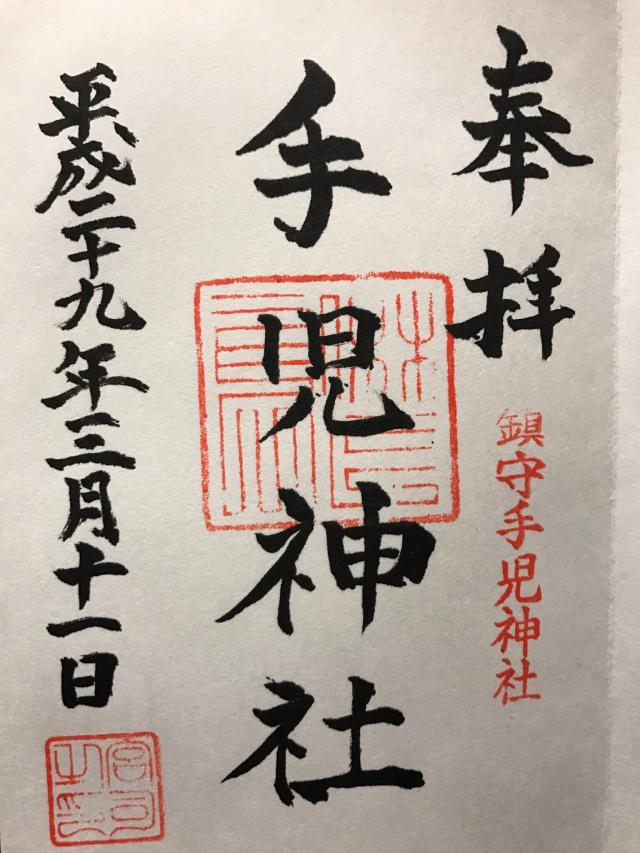 奉拝
鎮守手児神社
手児神社
平成二十九年三月十一日
宮司之印